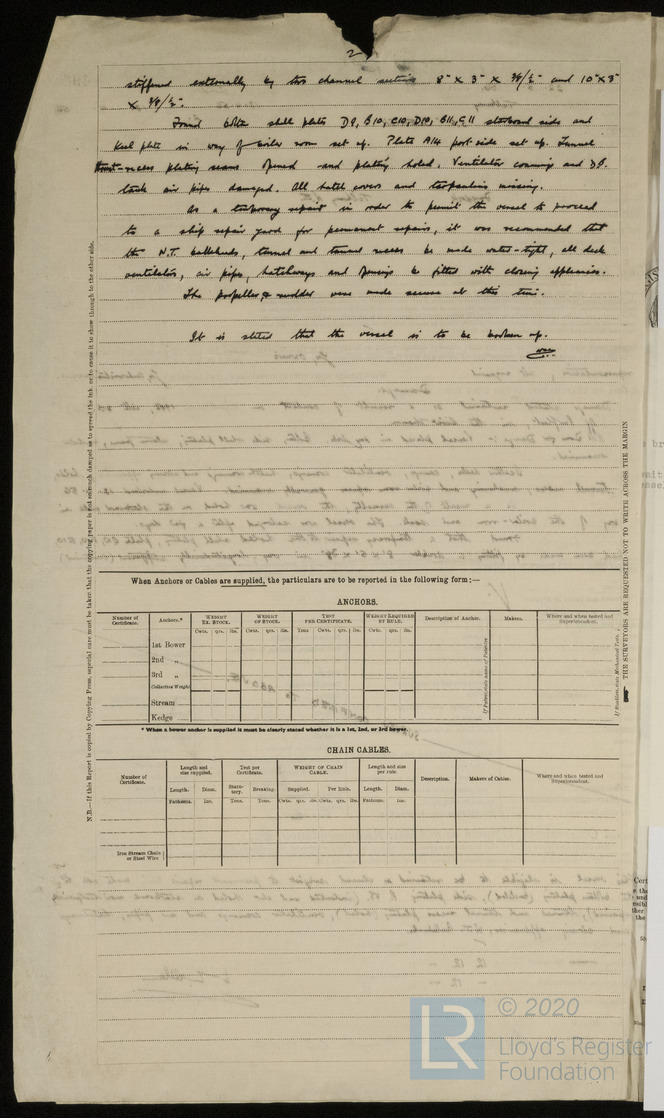 2
stiffened externally by two channel sections 8" x 3" x 3/8/½" and 10" x 3"
x 3/8/½".
Found bottom shell plates D9, B10, C10, D10, B11, C11 starboard side and
keel plate in way of boiler room set up. Plate A14 port side set up. Tunnel
thrust-recess plating seams opened and plating holed. Ventilator coamings and D.B.
tank air pipes damaged. All hatch covers and tarpaulins missing.
As a temporary repair in order to permit the vessel to proceed
to a ship repair yard for permanent repairs, it was recommended that
the W.T. bulkheads, tunnel and tunnel recess be made water-tight, all deck
ventilators, air pipes, hatchways and openings be fitted with closing appliances.
The propeller & rudder were made secure at this time.
It is stated that the vessel is to be broken up.
N.B.—If this Report is copied by Copying Press, especial care must be taken that the copying paper is not so much damped as to spread the ink, or to cause it to show through to the other side.
THE SURVEYORS ARE REQUESTED NOT TO WRITE ACROSS THE MARGIN
When Anchors or Cables are supplied, the particulars are to be reported in the following form:—
ANCHORS.
Number of Certificate. Anchors.* WEIGHT EX. STOCK. WEIGHT OF STOCK. TEST PER CERTIFICATE. WEIGHT REQUIRED BY RULE. Description of Anchor. Makers. Where and when tested and Superintendent.
Cwts. qrs. lbs. Cwts. qrs. lbs. Tons Cwts. qrs. lbs. Cwts. qrs. lbs.
1st Bower
2nd „
3rd „
Collective Weight
Stream
Kedge
* When a bower anchor is supplied it must be clearly stated whether it is a 1st, 2nd, or 3rd bower.
CHAIN CABLES.
Number of Certificate. Length and size supplied. Test per Certificate. WEIGHT OF CHAIN CABLE. Length and size per rule. Description. Makers of Cables. Where and when tested and Superintendent.
Length. Diam. Statutory. Breaking. Supplied. Per Rule. Length. Diam.
Fathoms. Ins. Tons. Tons. Cwts. qrs. lbs. Cwts. qrs. lbs. Fathoms. Ins.
Iron Stream Chain or Steel Wire
LR
© 2020
Lloyd's Register
Foundation